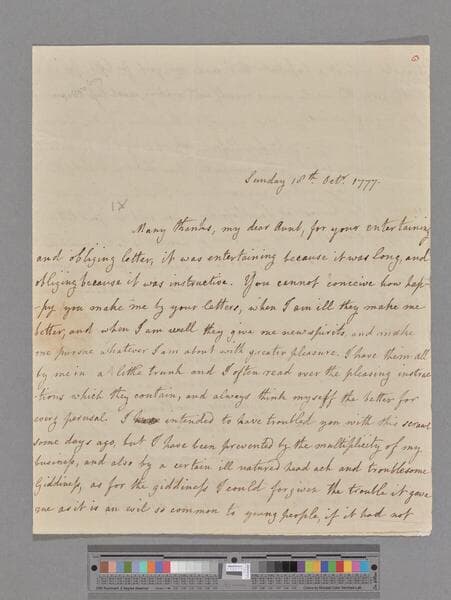 6
Sunday 18th. Octr. 1777.
XI
Many thanks, my dear Aunt, for your entertaining
and obliging letter, it was entertaining because it was long, and
obliging because it was instructive. You cannot conceive how hap-
-py you make me by your letters, when I am ill they make me
better, and when I am well they give me new spirits, and make
me pursue whatever I am about with greater pleasure. I have them all
by me in a little trunk and I often read over the pleasing instruc
tions which they contain, and always think myself the better for
every perusal. I intended to have troubled you with this scrawl
some days ago, but I have been prevented by the multiplicity of my
business, and also by a certain ill natured head ach and troublesome
Giddiness, as for the giddiness I could forgive the trouble it gave
me as it is an evil so common to young people, if it had not